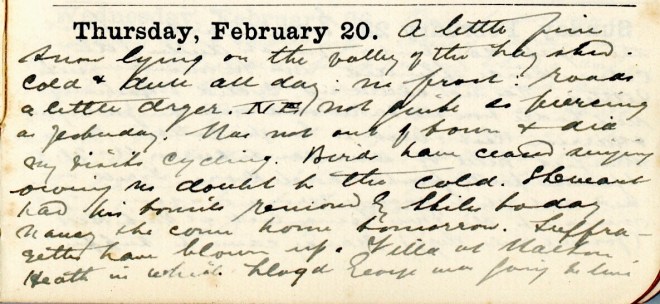 Thursday, February 20. A little fine
snow lying on the valley of the hay shed
cold & dull all day: no frost: roads
a little dryer. NE not quite as piercing
as yesterday. Was not out of town & did
my visits cycling. Birds have ceased singing
owing no doubt to the cold. Stewart
had his tonsils removed by today
Nancy she come home tomorrow. Suffra-
gettes have blown up. Villa at Walton
Heath in which Lloyd George was going to live